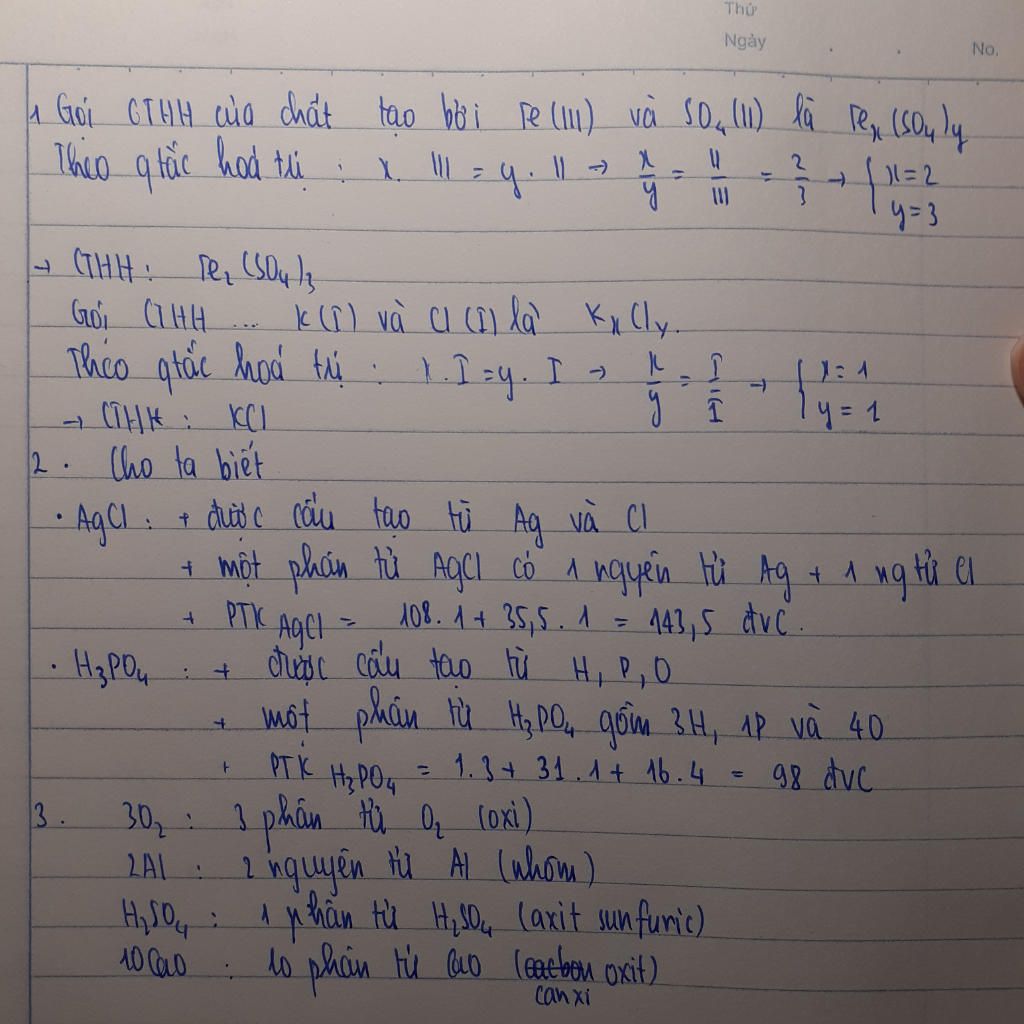 Thứ
Ngày . . No.
1 Gọi CTHH của chất tạo bởi Fe (III) và SO₄ (II) là Feₓ(SO₄)y
Theo qtắc hoá trị : x. III = y. II → x/y = II/III = 2/3 → { x=2 y=3
→ CTHH : Fe₂(SO₄)₃
Gọi CTHH ... K(I) và Cl (I) là KₓCly.
Theo qtắc hoá trị : x.I = y. I → x/y = I/I → { x=1 y=1
→ CTHH : KCl
2. Cho ta biết
· AgCl : + được cấu tạo từ Ag và Cl
+ một phân tử AgCl có 1 nguyên tử Ag + 1 ng tử Cl
+ PTK AgCl = 108.1 + 35,5.1 = 143,5 đvC.
· H₃PO₄ : + được cấu tạo từ H, P, O
+ một phân tử H₃PO₄ gồm 3H, 1P và 4O
+ PTK H₃PO₄ = 1.3 + 31.1 + 16.4 = 98 đvC
3. 3O₂ : 3 phân tử O₂ (oxi)
2Al : 2 nguyên tử Al (nhôm)
H₂SO₄ : 1 phân tử H₂SO₄ (axit sunfuric)
10CaO : 10 phân tử CaO (cacbon oxit)
canxi